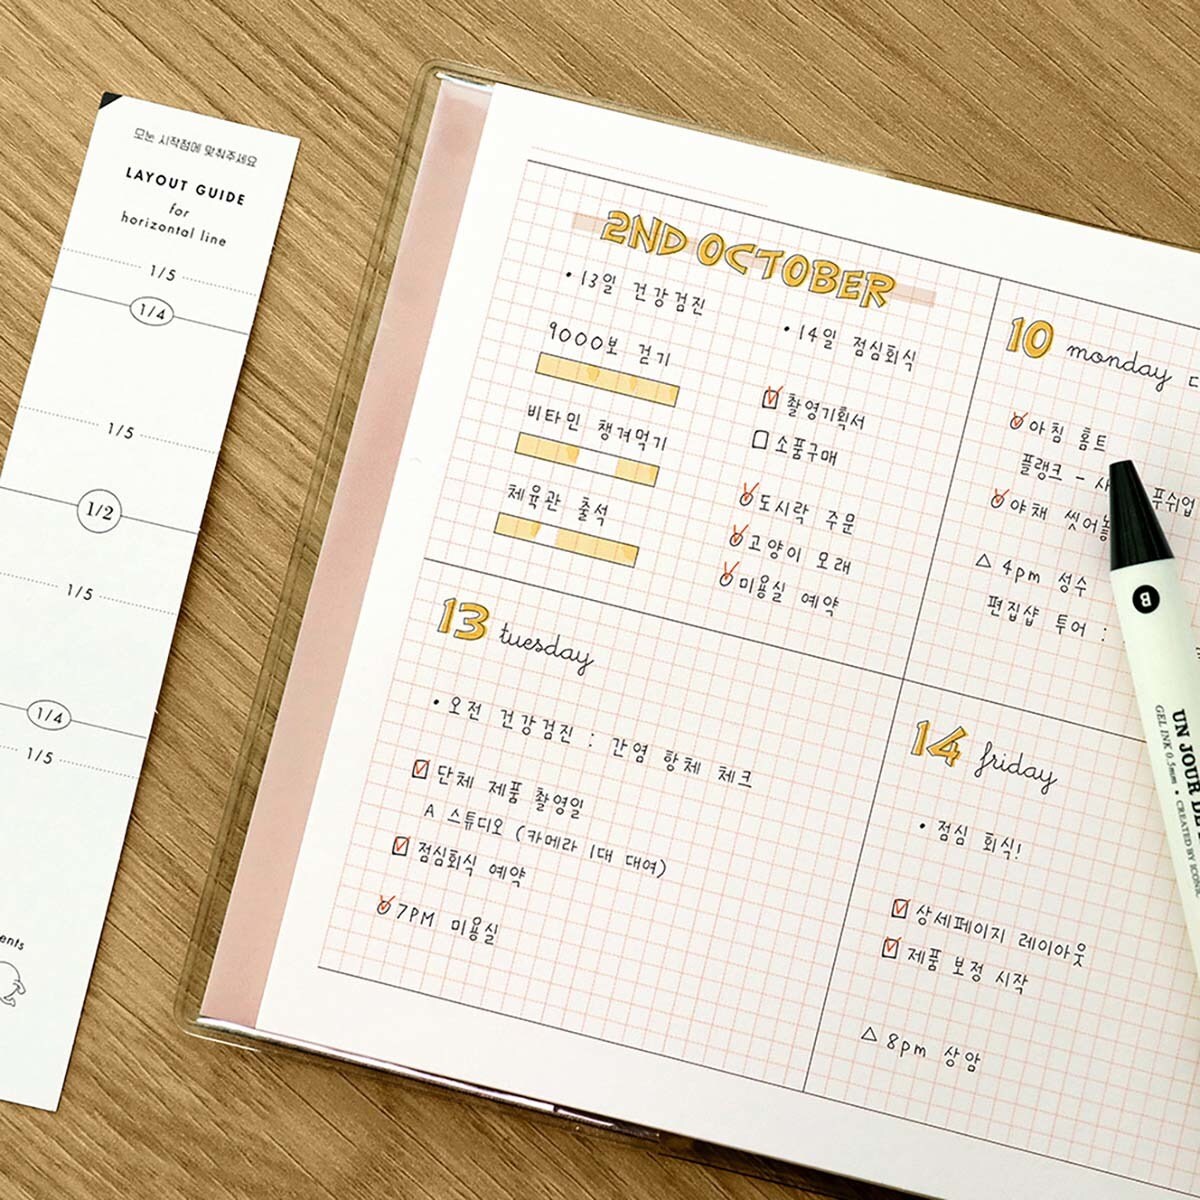 모눈 시작점에 맞춰주세요
LAYOUT GUIDE
for
horizontal line
1/5
1/4
1/5
1/2
1/5
1/4
1/5
2ND OCTOBER
• 13일 건강검진
9000보 걷기
비타민 챙겨먹기
체육관 출석
• 14일 점심회식
촬영기획서
소품구매
도시락 주문
고양이 모래
미용실 예약
10 monday
아침 홈트
플랭크 - 푸쉬업
야채 씻어놓
△ 4pm 성수
편집샵 투어 :
13 tuesday
• 오전 건강검진 : 간염 항체 체크
단체 제품 촬영일
A 스튜디오 (카메라 1대 대여)
점심회식 예약
7PM 미용실
14 friday
• 점심 회식!
상세페이지 레이아웃
제품 보정 시작
△ 8pm 상암
B
UN JOUR DE
GEL INK 0.5mm • CREATED BY ICONIC